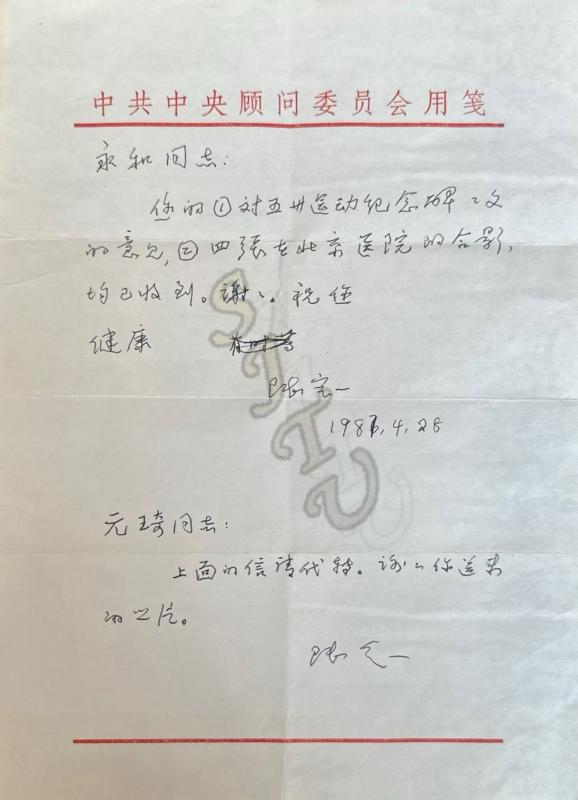 中共中央顾问委员会用笺
永和同志：
您的①对五卅运动纪念碑碑文
的意见，②四張在北京医院的合影，
均已收到。謝谢。祝您
健康
陆定一
4.28
元琦同志：
上面的信请代转。谢谢你送来
的照片。
陆定一